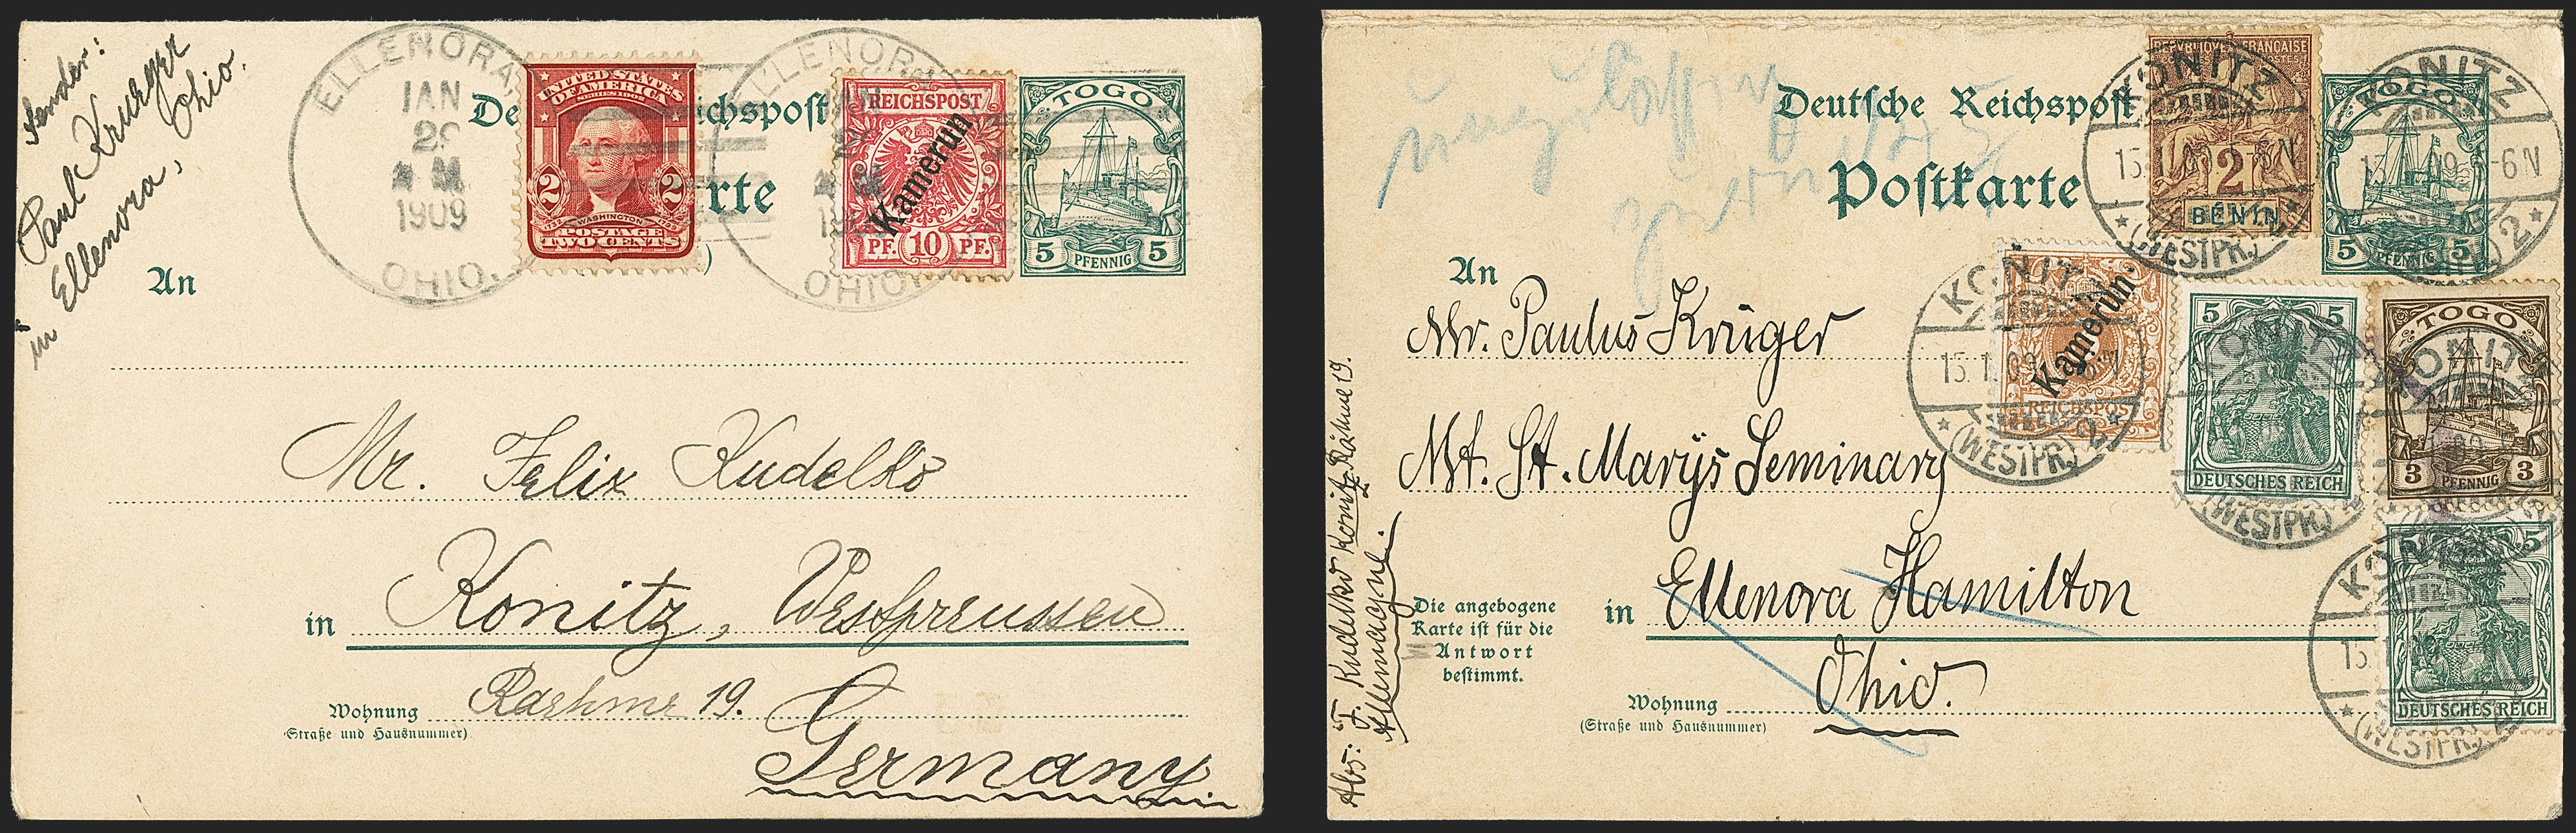 Sender:
Paul Krueger
in Ellenora, Ohio.
ELLENORA
JAN
1909
OHIO.
De
UNITED STATES
OF AMERICA
SERIES 1902
2 2
WASHINGTON
POSTAGE
TWO CENTS
ichspost
rte
ELLENORA
OHIO
REICHSPOST
Kamerun
PF. 10 PF.
TOGO
5 PFENNIG 5
An
Mr. Felix Kudelko
in Konitz, Westpreussen
Wohnung
(Straße und Hausnummer)
Raehme 19.
Germany
Deutsche Reichspost
Postkarte
REPUBLIQUE FRANÇAISE
2
BÉNIN
KONITZ
15.1.09
(WESTPR.) 2
TOGO
5 PFENNIG 5
KONITZ
-6N
2
An
Mr. Paulus Krüger
Mt. St. Marys Seminary
in Ellenora Hamilton
Ohio.
Wohnung
(Straße und Hausnummer)
Die angebogene
Karte ist für die
Antwort
bestimmt.
Abs: F. Kudelko Konitz Rähme 19.
Allemagne.
KONITZ
15.1.09
(WESTPR.) 2
Kamerun
REICHSPOST
5 5
DEUTSCHES REICH
KONITZ
(WESTPR.)
TOGO
3 PFENNIG 3
KONITZ
5
DEUTSCHES REICH
(WESTPR.)